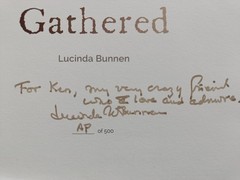 Gathered
Lucinda Bunnen
For Ken, my very crazy friend
who I love and admire.
Lucinda Bunnen
AP of 500